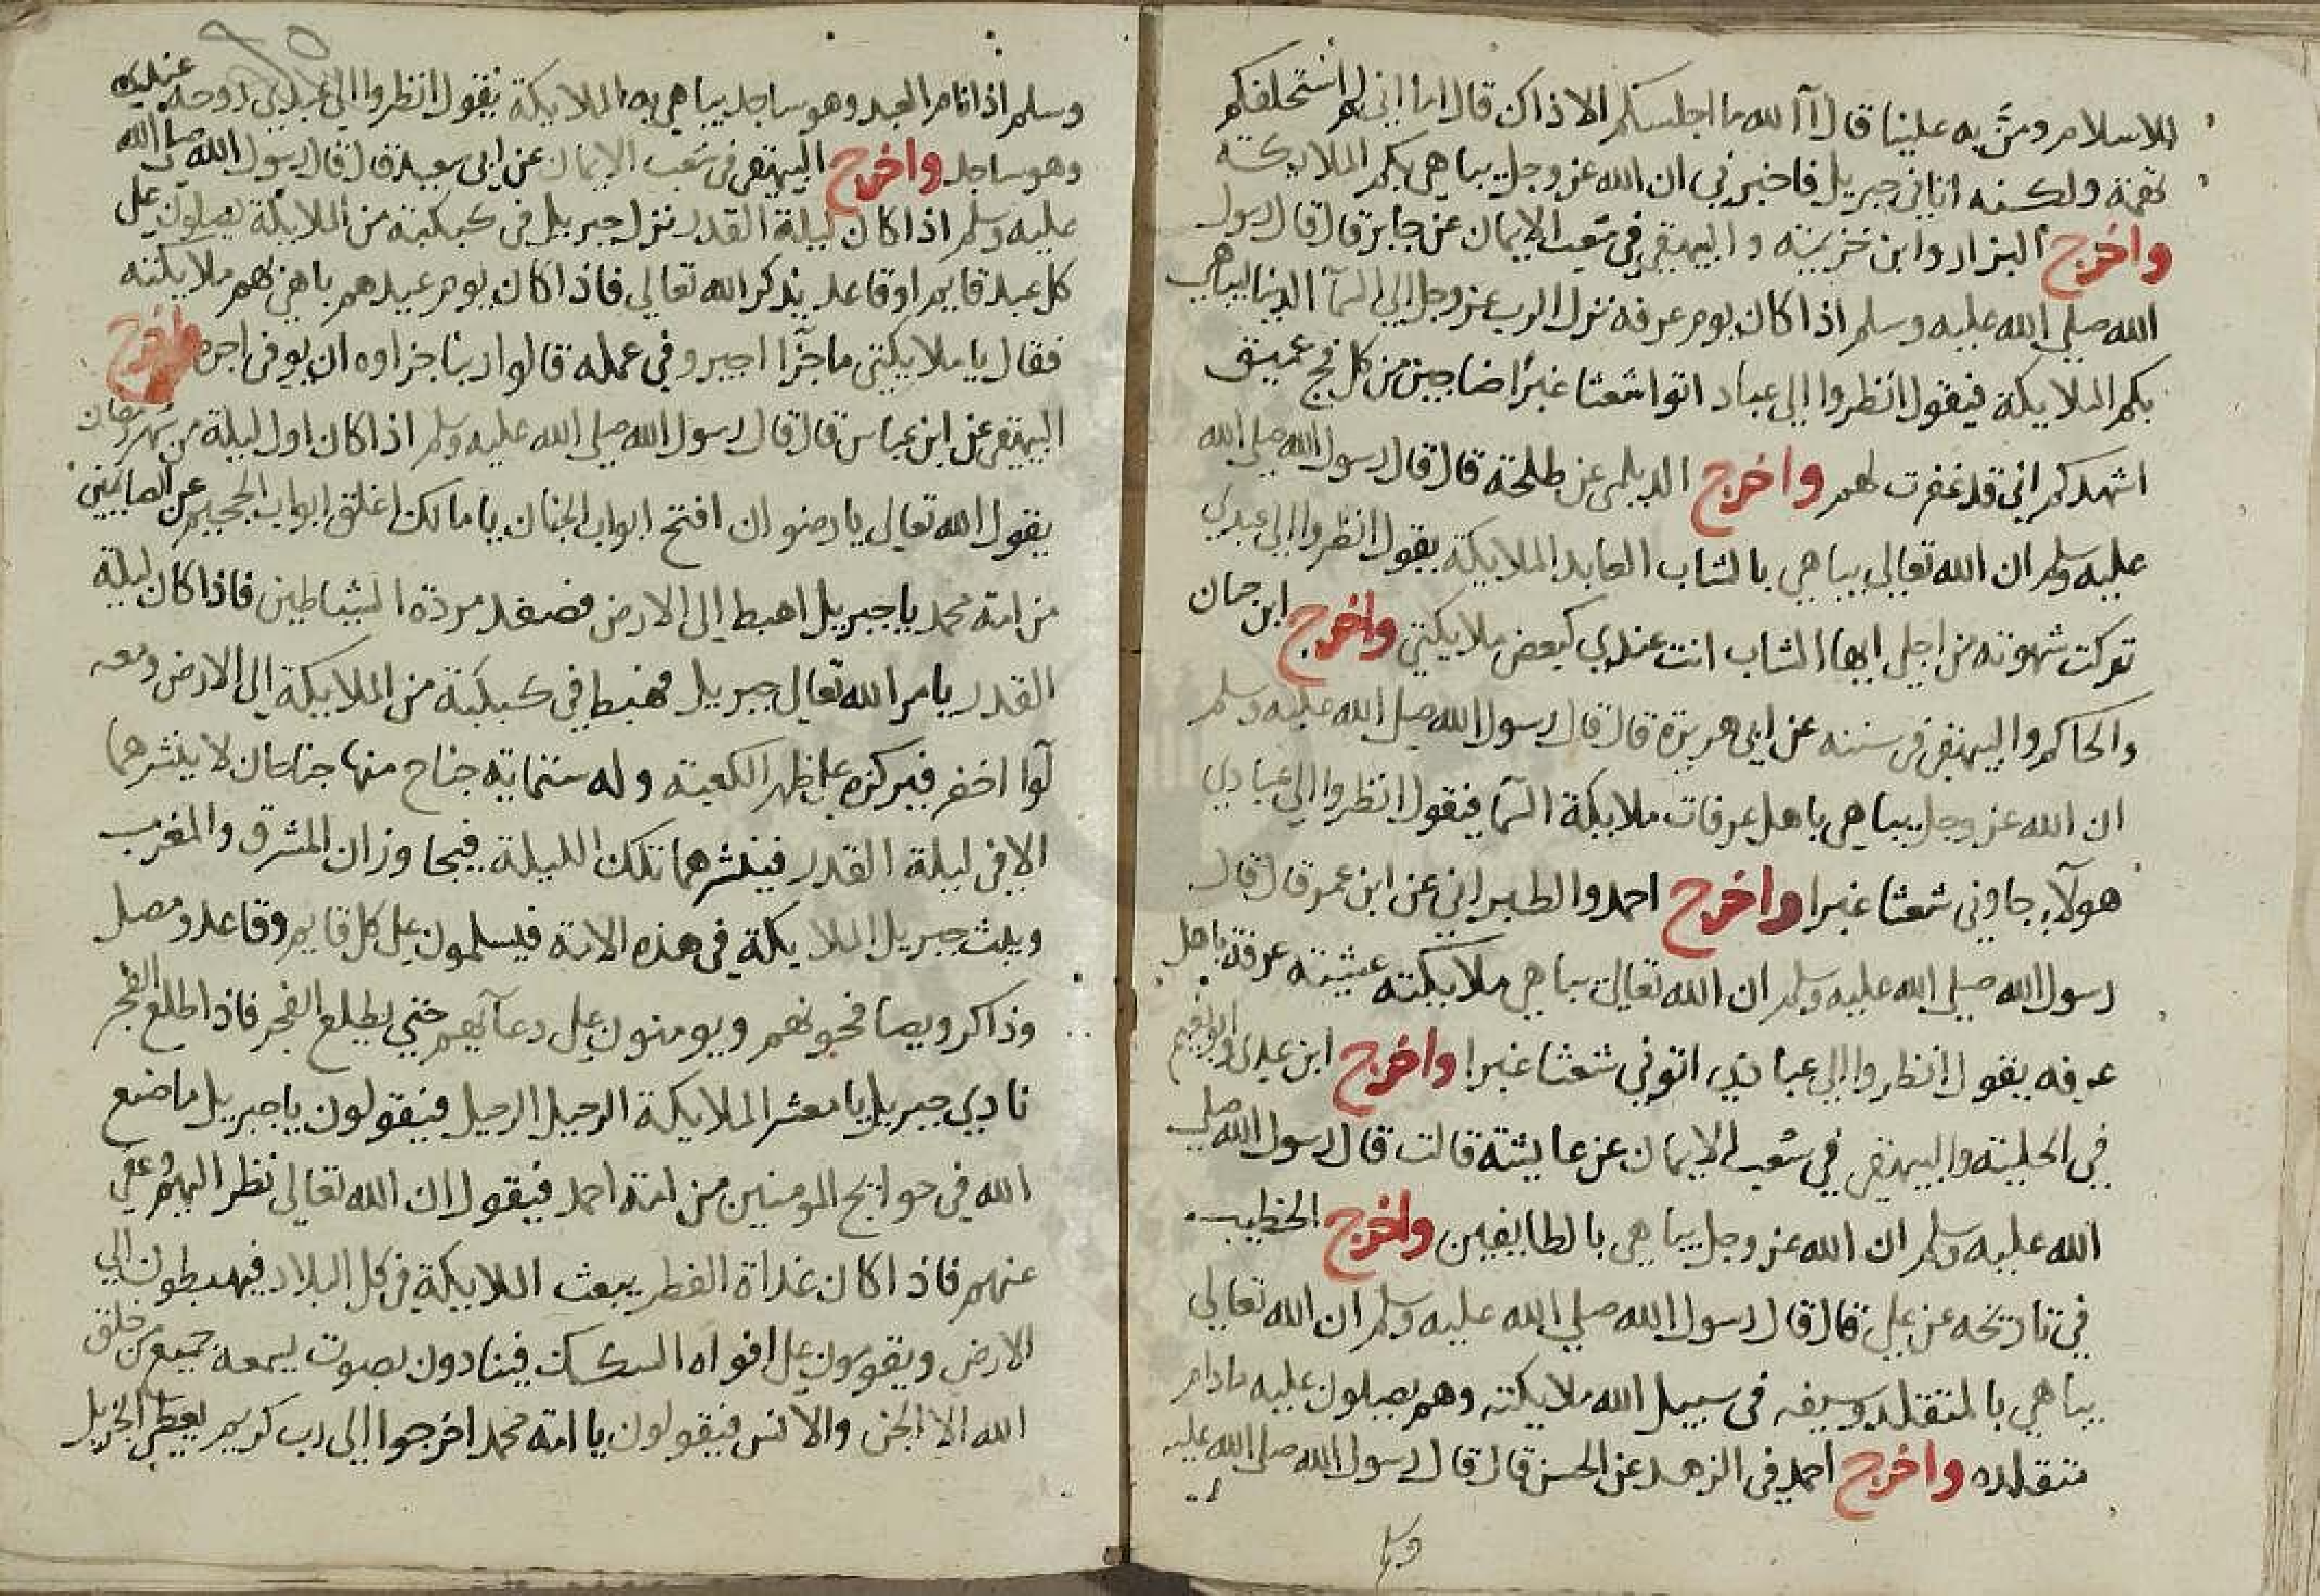 للاسلام ومن به علينا قال آالله ما اجلسكم الا ذاك قال اما اني لم استحلفكم
تهمة ولكنه اتاني جبريل فاخبرني ان الله عز وجل يباهي بكم الملايكة
واخرج البزار وابن خزيمة والبيهقي في شعب الايمان عن جابر قال قال رسول
الله صلي الله عليه وسلم اذا كان يوم عرفة نزل الرب عز وجل الي السمآ الدنيا ليباهي
بكم الملايكة فيقول انظروا الي عباد اتوا شعثا غبرا ضاحين من كل فج عميق
اشهدكم اني قد غفرت لهم واخرج الديلمي عن طلحة قال قال رسول الله صلي الله
عليه وسلم ان الله تعالي يباهي بالشاب العابد الملايكة يقول انظروا الي عبدي
تركت شهوته من اجلي ايها الشاب انت عندي كبعض ملايكتي واخرج ابن حبان
والحاكم والبيهقي في سننه عن ابي هريرة قال قال رسول الله صلي الله عليه وسلم
ان الله عز وجل يباهي باهل عرفات ملايكة السما فيقول انظروا الي عبادي
هولآء جاوني شعثا غبرا واخرج احمد والطبراني عن ابن عمرو قال قال
رسول الله صلي الله عليه وسلم ان الله تعالي يباهي ملايكته عشية عرفة باهل
عرفه يقول انظروا الي عبادي اتوني شعثا غبرا واخرج ابن عدي وابو نعيم
في الحلية والبيهقي في شعب الايمان عن عايشة قالت قال رسول الله صلي
الله عليه وسلم ان الله عز وجل يباهي بالطايفين واخرج الخطيب
في تاريخه عن علي قال قال رسول الله صلي الله عليه وسلم ان الله تعالي
يباهي بالمتقلد سيفه في سبيل الله ملايكته وهم يصلون عليه ما دام
متقلده واخرج احمد في الزهد عن الحسن قال قال رسول الله صلي الله عليه
وسلم
وسلم اذا نام العبد وهو ساجد يباهي به الملايكة يقول انظروا الي عبدي روحه عندي
وهو ساجد واخرج البيهقي في شعب الايمان عن ابي سعيد قال قال رسول الله صلي الله
عليه وسلم اذا كان ليلة القدر نزل جبريل في كبكبة من الملايكة يصلون علي
كل عبد قايم او قاعد يذكر الله تعالي فاذا كان يوم عيدهم باهي بهم ملايكته
فقال يا ملايكتي ما جزآ اجير وفي عمله قالوا ربنا جزاوه ان يوفي اجره واخرج
البيهقي عن ابن عباس قال قال رسول الله صلي الله عليه وسلم اذا كان اول ليلة من شهر رمضان
يقول الله تعالي يا رضوان افتح ابواب الجنان يا مالك اغلق ابواب الجحيم عن الصايمين
من امة محمد يا جبريل اهبط الي الارض فصفد مردة الشياطين فاذا كان ليلة
القدر يامر الله تعالي جبريل فهبط في كبكبة من الملايكة الي الارض ومعه
لوآ اخضر فيركزه علي ظهر الكعبة وله ستماية جناح منها جناحان لا ينشرهما
الا في ليلة القدر فينشرهما تلك الليلة فيجاوزان المشرق والمغرب
ويبث جبريل الملايكة في هذه الامة فيسلمون علي كل قايم وقاعد ومصل
وذاكر ويصافحونهم ويومنون علي دعآيهم حتي يطلع الفجر فاذا طلع الفجر
نادي جبريل يا معشر الملايكة الرحيل الرحيل فيقولون يا جبريل ما صنع
الله في حوايج المومنين من امة احمد فيقول ان الله تعالي نظر اليهم وعفي
عنهم فاذا كان غداة الفطر يبعث الملايكة في كل البلاد فيهبطون الي
الارض ويقومون علي افواه السكك فينادون بصوت يسمعه جميع من خلق
الله الا الجن والانس فيقولون يا امة محمد اخرجوا الي رب كريم يعطي الجزيل